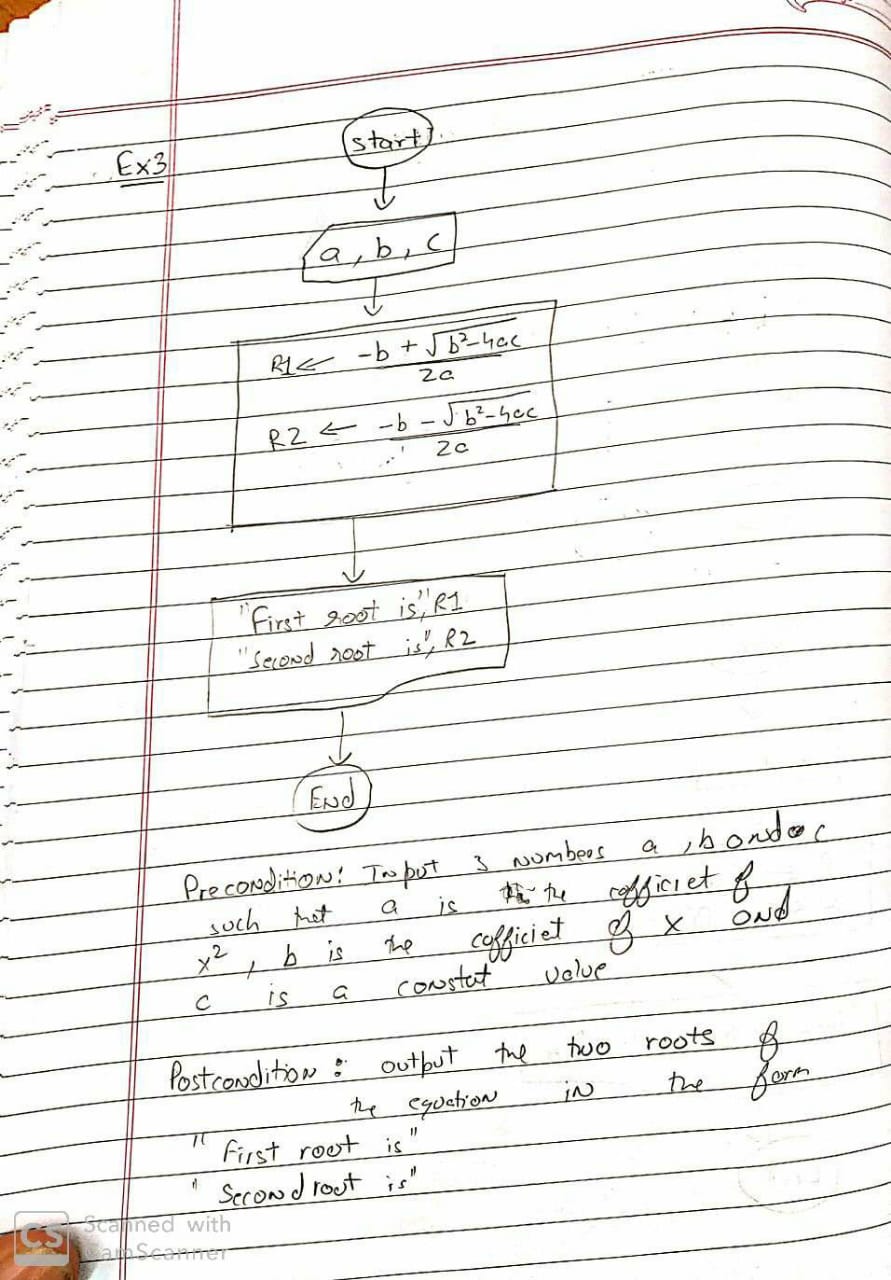 Ex3
start
a, b, c
R1 ← -b + √b²-4ac
2a
R2 ← -b - √b²-4ac
2a
"First root is", R1
"Second root is", R2
End
Precondition: Input 3 numbers a, b and c
such that a is the cofficiet of
x², b is the cofficiet of x and
c is a constat value
Postcondition: output the two roots of
the equation in the form
"First root is"
"Second root is"
CS Scanned with
CamScanner